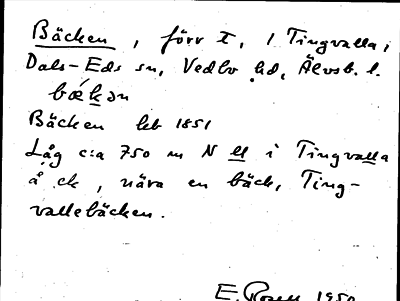 Bäcken, förr t, i Tingvalla,
Dals-Eds sn, Vedbo hd, Älvsb. l.
bœ́kən
Bäcken hfs 1851
Låg c:a 750 m N i Tingvalla
å, nära en bäck, Ting-
vallebäcken.
E. 1950